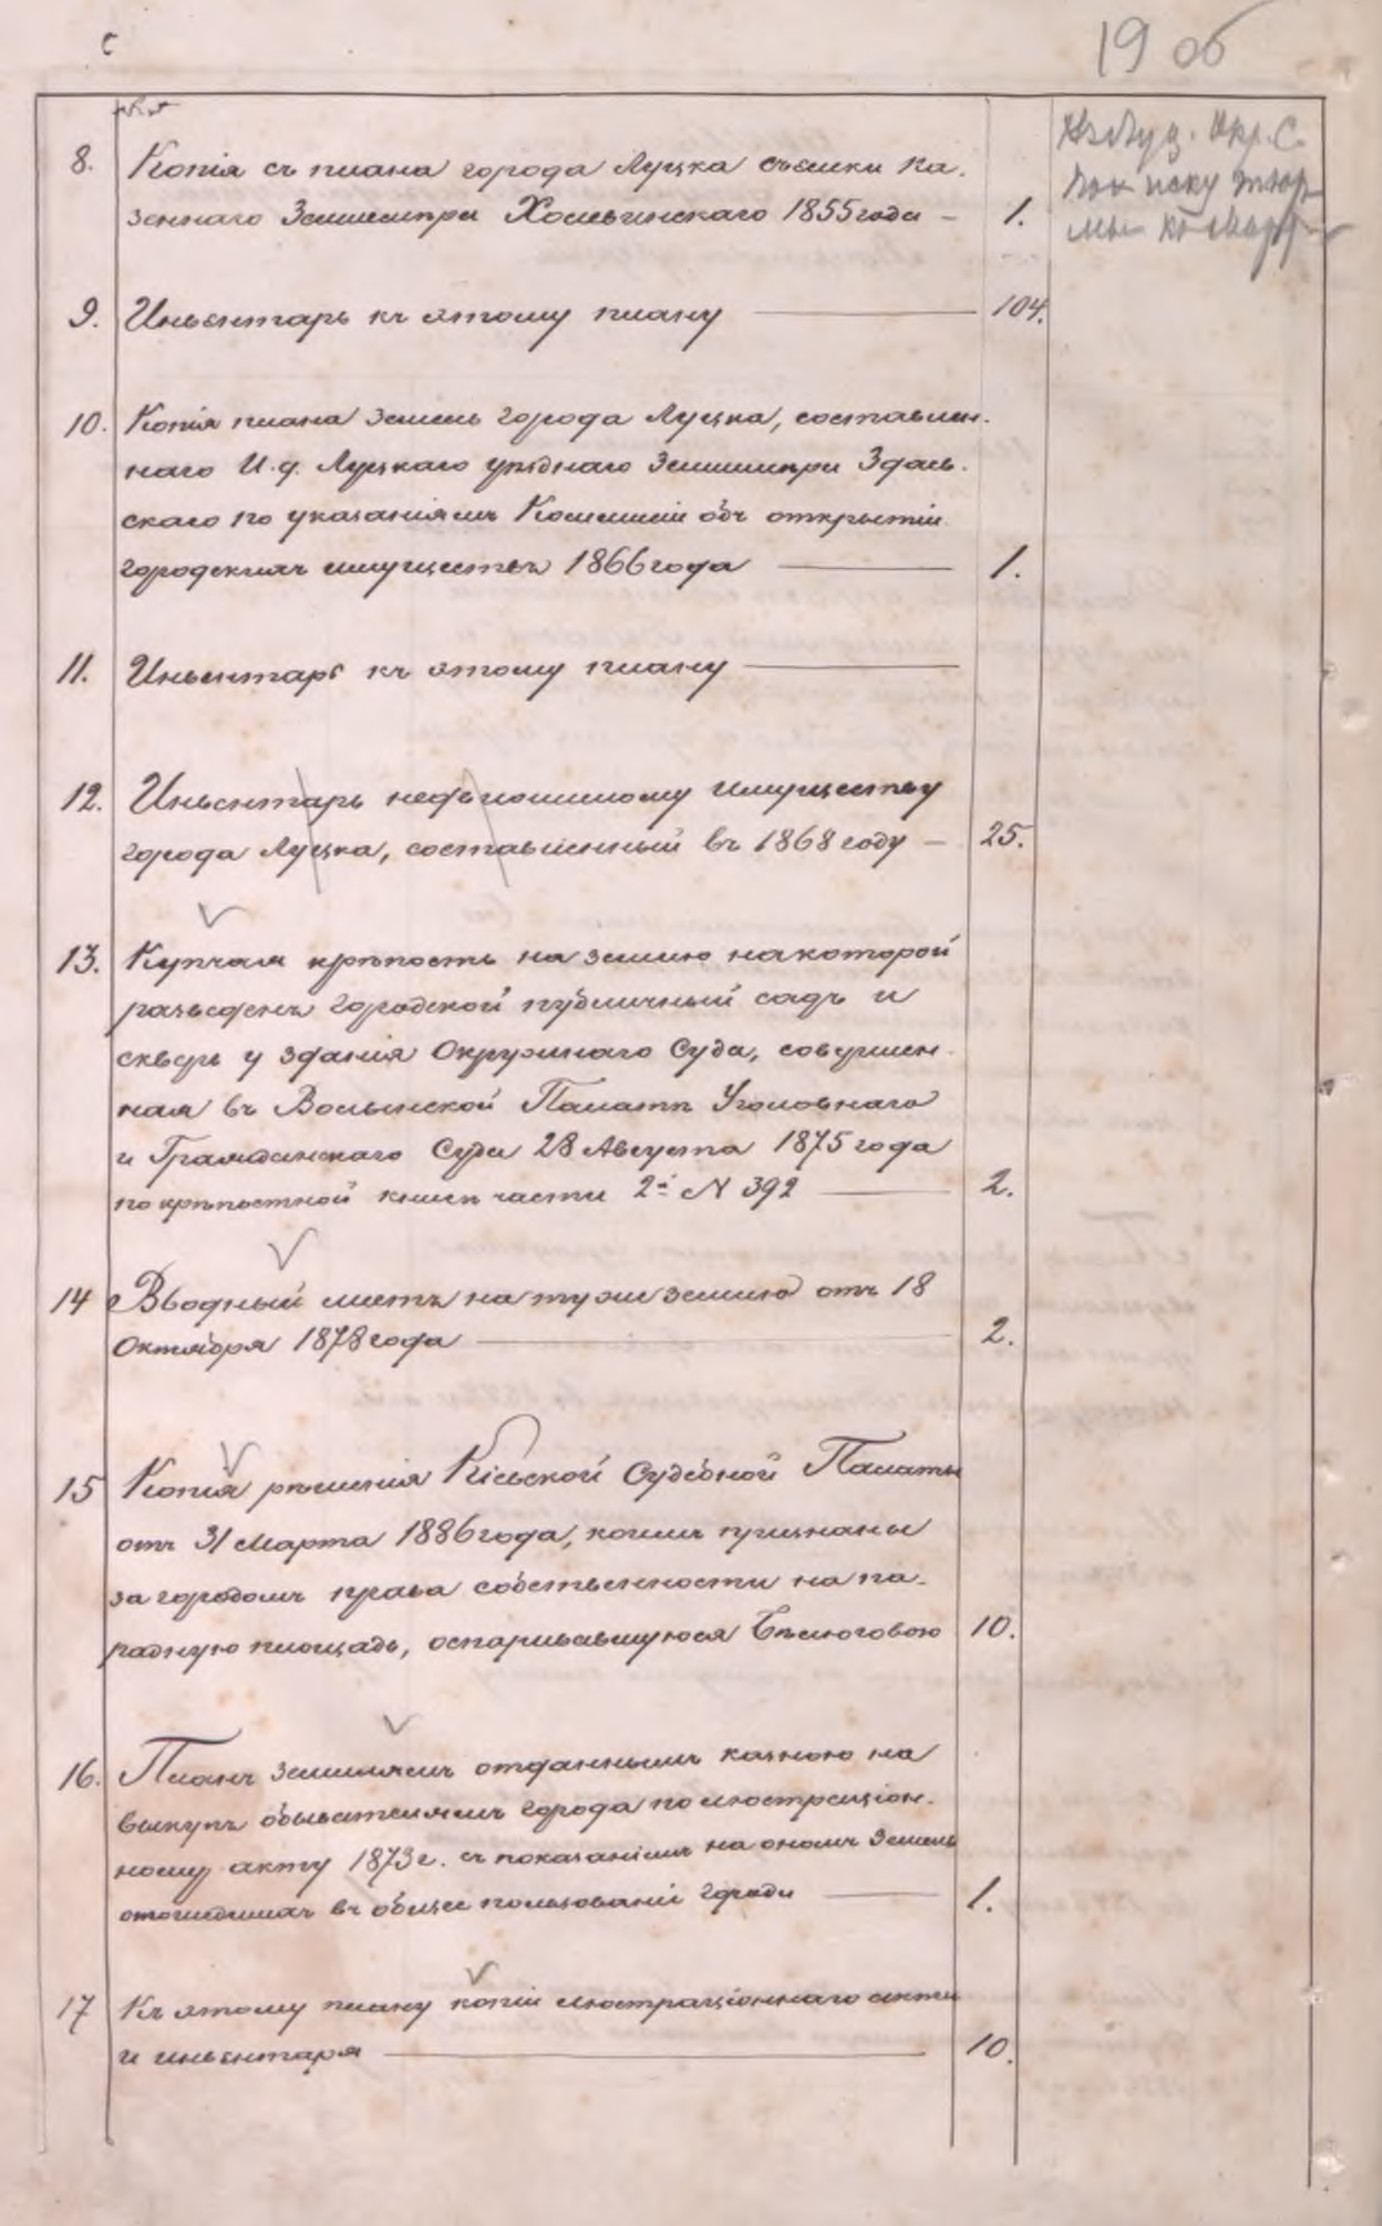 19 об
8. Копія съ плана города Луцка съемки ка-
зеннаго Землемѣра Хольвинскаго 1855 года — 1.
Въ Луц. Окр. С.
по иску тюр
мы къ
9. Инвентарь къ этому плану — 104.
10. Копія плана земель города Луцка, составлен-
наго И. д. Луцкаго уѣзднаго Землемѣра Здань-
скаго по указаніямъ Коммисіи объ открытіи
городскихъ имуществъ 1866 года — 1.
11. Инвентарь къ этому плану —
12. Инвентарь недвижимому имуществу
города Луцка, составленный въ 1868 году — 25.
13. Купчая крѣпость на землю на которой
разведенъ городской публичный садъ и
скверъ у зданія Окружнаго Суда, совершен-
ная въ Волынской Палатѣ Уголовнаго
и Гражданскаго Суда 28 Августа 1875 года
по крѣпостной книгѣ части 2й N 392 — 2.
14 Вводный листъ на ту же землю отъ 18
Октября 1878 года — 2.
15 Копія рѣшенія Кіевской Судебной Палаты
отъ 31 Марта 1886 года, коимъ признаны
за городомъ права собственности на па-
радную площадь, оспаривавшуюся Бѣлоговою 10.
16. Планъ землямъ отданнымъ казною на
выкупъ обывателямъ города по люстраціон-
ному акту 1873 г. съ показаніемъ на ономъ земель
отошедшихъ въ общее пользованіе города — 1.
17 Къ этому плану копіи люстраціоннаго акта
и инвентаря — 10.